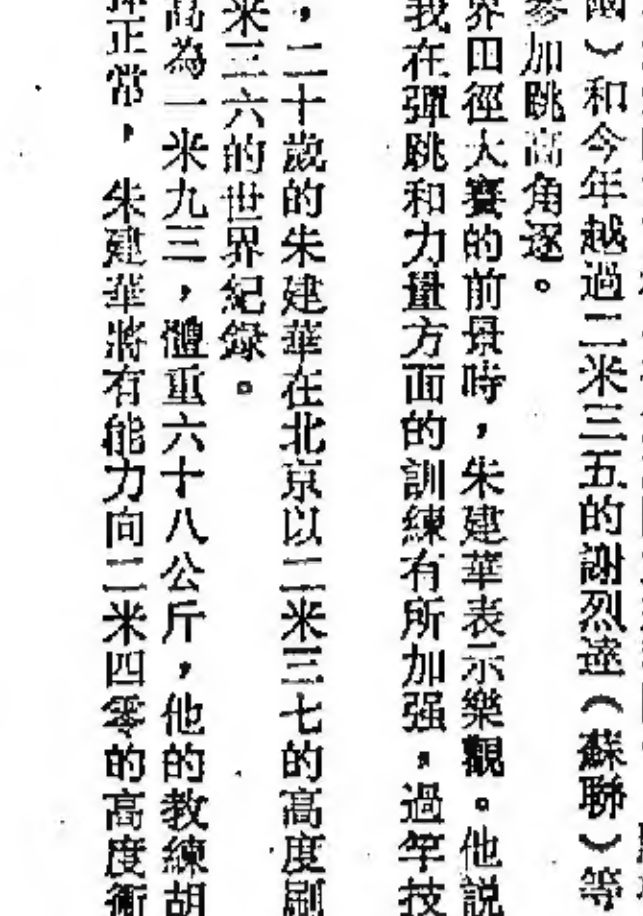 國）和今年越過二米三五的謝烈達（蘇聯）等
參加跳高角逐。
界田徑大賽的前景時，朱建華表示樂觀。他説
我在彈跳和力量方面的訓練有所加强，過竿技
，二十歲的朱建華在北京以二米三七的高度刷
米三六的世界紀錄。
高為一米九三，體重六十八公斤，他的教練胡
正常，朱建華將有能力向二米四零的高度衝